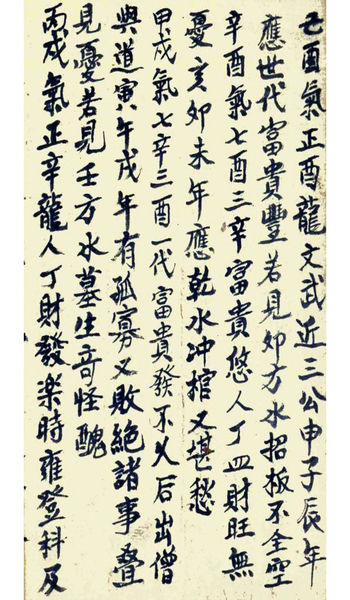 己酉氣正酉龍文武近三公申子辰年
應世代富貴豐若見卯方水招板不全空
辛酉氣七酉三辛富貴悠人丁皿財旺無
憂亥卯未年應乾水冲棺又堪愁
甲戌氣七辛三酉一代富貴發不久后出僧
與道寅午戌年有孤寡又敗絕諸事叠
見憂若見壬方水墓生奇怪醜
丙戌氣正辛龍人丁財發楽時雍登科及